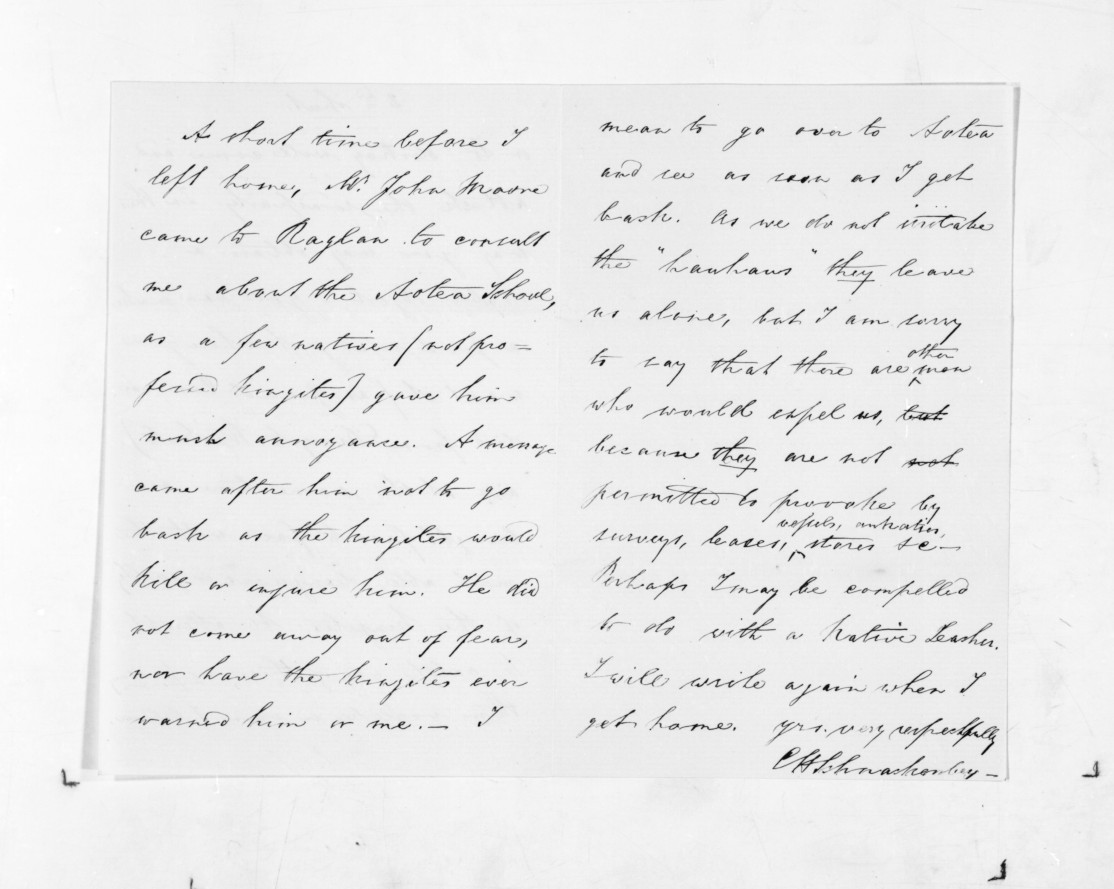 A short time before I
left home, Mr. John Moore
came to Raglan to consult
me about the Aotea School,
as a few natives (not pro=
fessed kingites) gave him
much annoyance. A message
came after him not to go
back as the kingites would
kill or injure him. He did
not come away out of fear,
nor have the kingites ever
warned him or me. — I
mean to go over to Aotea
and see as soon as I get
back. As we do not irritate
the "hauhaus" they leave
us alone, but I am sorry
other
to say that there are men
who would expel us, but
because they are not not
permitted to provoke by
vessels,
surveys, leases, stores &c —
Perhaps I may be compelled
to do with a Native Teacher.
I will write again when I
get home. yrs. very respectfully
C H Schnackenberg —